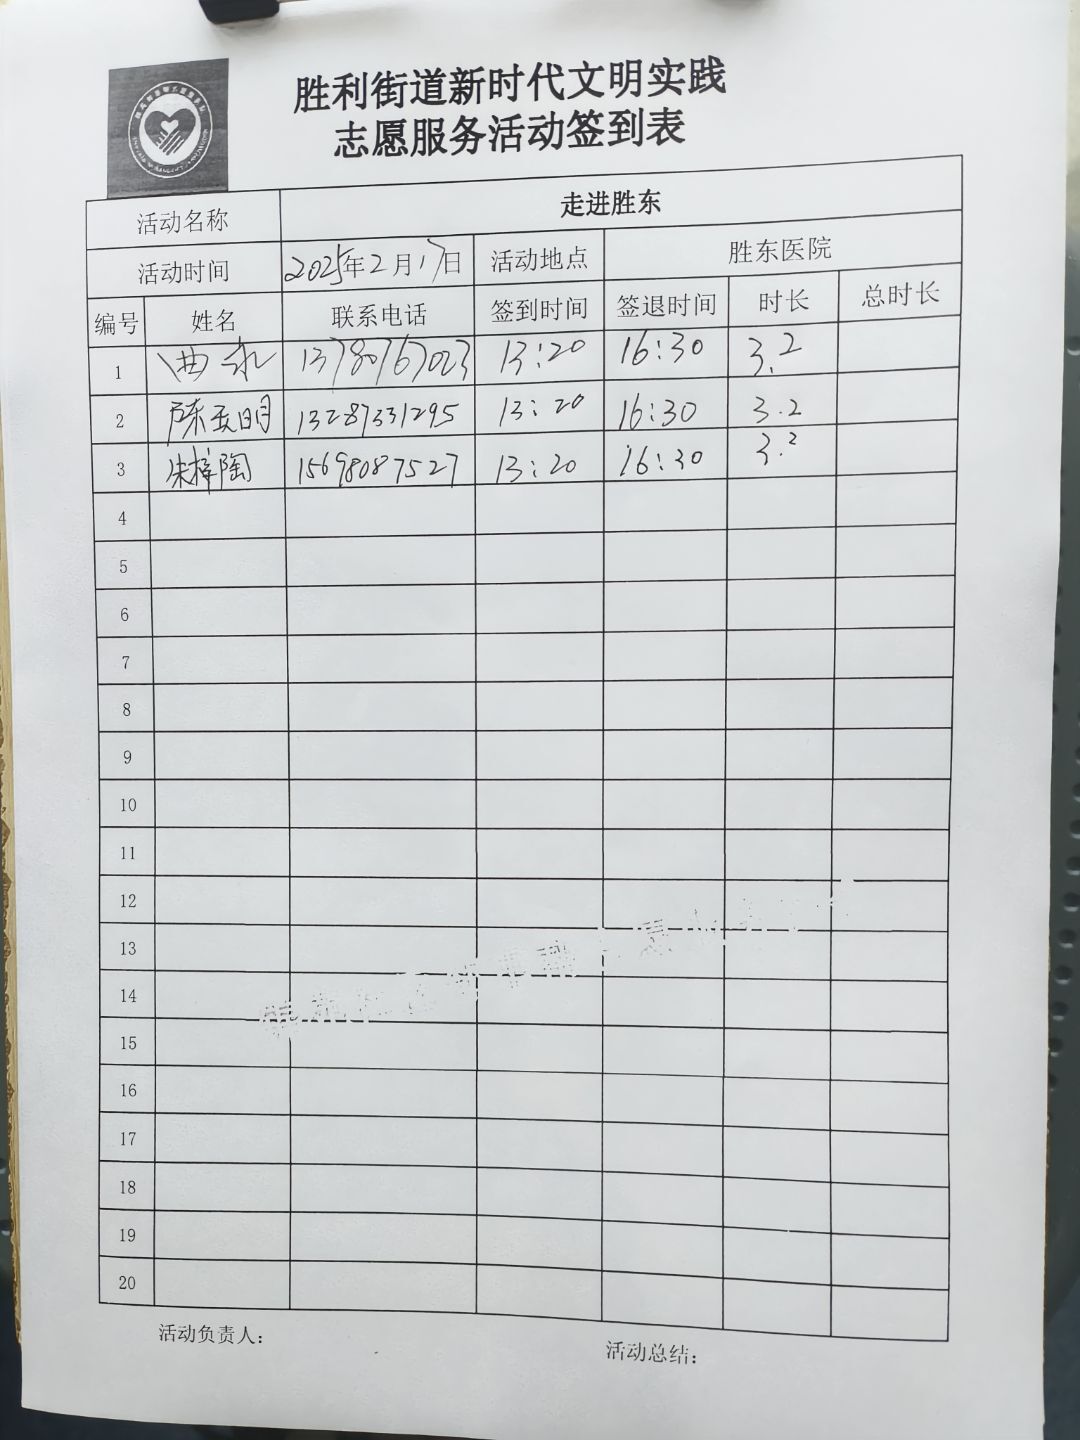 胜利街道新时代文明实践
志愿服务活动签到表
活动名称 走进胜东
活动时间 2025年2月17日 活动地点 胜东医院
编号 姓名 联系电话 签到时间 签退时间 时长 总时长
1 曲永 13780767023 13:20 16:30 3.2
2 陈玉明 13287331295 13:20 16:30 3.2
3 朱梓陶 15698087527 13:20 16:30 3.2
4
5
6
7
8
9
10
11
12
13
14
15
16
17
18
19
20
活动负责人： 活动总结：